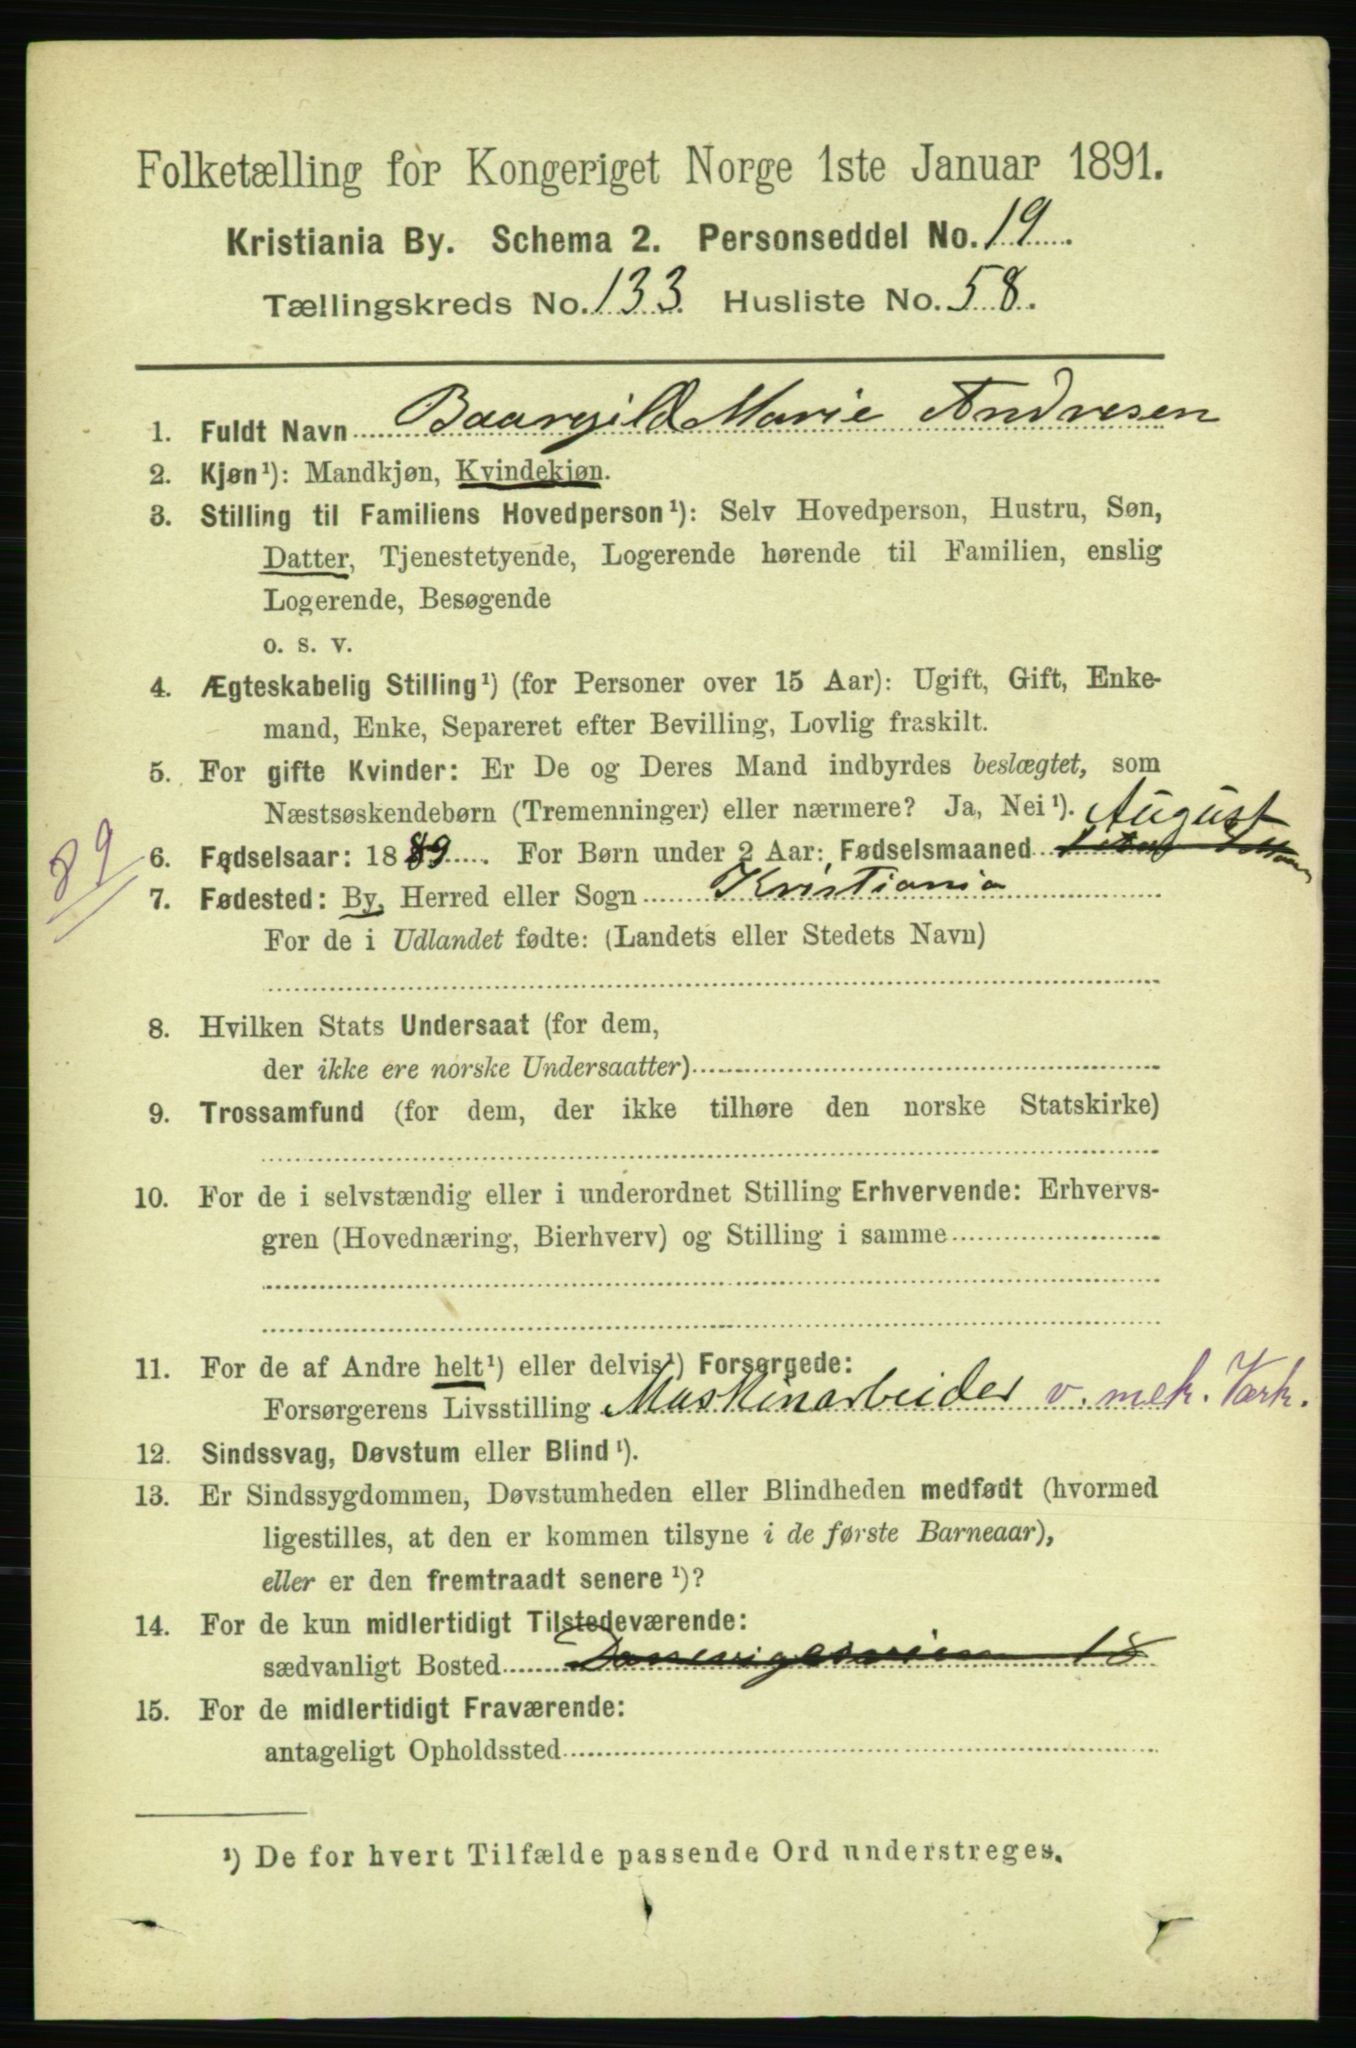 Folketælling for Kongeriget Norge 1ste Januar 1891.
Kristiania By. Schema 2. Personseddel No. 19
Tællingskreds No. 133 Husliste No. 58.
1. Fuldt Navn Baargild Marie Andresen
2. Kjøn¹): Mandkjøn, Kvindekjøn.
3. Stilling til Familiens Hovedperson¹): Selv Hovedperson, Hustru, Søn,
Datter, Tjenestetyende, Logerende hørende til Familien, enslig
Logerende, Besøgende
o. s. v.
4. Ægteskabelig Stilling¹) (for Personer over 15 Aar): Ugift, Gift, Enke-
mand, Enke, Separeret efter Bevilling, Lovlig fraskilt.
5. For gifte Kvinder: Er De og Deres Mand indbyrdes beslægtet, som
Næstsøskendebørn (Tremenninger) eller nærmere? Ja, Nei¹).
August
89
6. Fødselsaar: 1889. For Børn under 2 Aar: Fødselsmaaned
7. Fødested: By, Herred eller Sogn Kristiania
For de i Udlandet fødte: (Landets eller Stedets Navn)
8. Hvilken Stats Undersaat (for dem,
der ikke ere norske Undersaatter)
9. Trossamfund (for dem, der ikke tilhøre den norske Statskirke)
10. For de i selvstændig eller i underordnet Stilling Erhvervende: Erhvervs-
gren (Hovednæring, Bierhverv) og Stilling i samme
11. For de af Andre helt¹) eller delvis¹) Forsørgede:
Forsørgerens Livsstilling Maskinarbeider v. mek. Værk.
12. Sindssvag, Døvstum eller Blind¹).
13. Er Sindssygdommen, Døvstumheden eller Blindheden medfødt (hvormed
ligestilles, at den er kommen tilsyne i de første Barneaar),
eller er den fremtraadt senere¹)?
14. For de kun midlertidigt Tilstedeværende:
sædvanligt Bosted 18
15. For de midlertidigt Fraværende:
antageligt Opholdssted
¹) De for hvert Tilfælde passende Ord understreges.